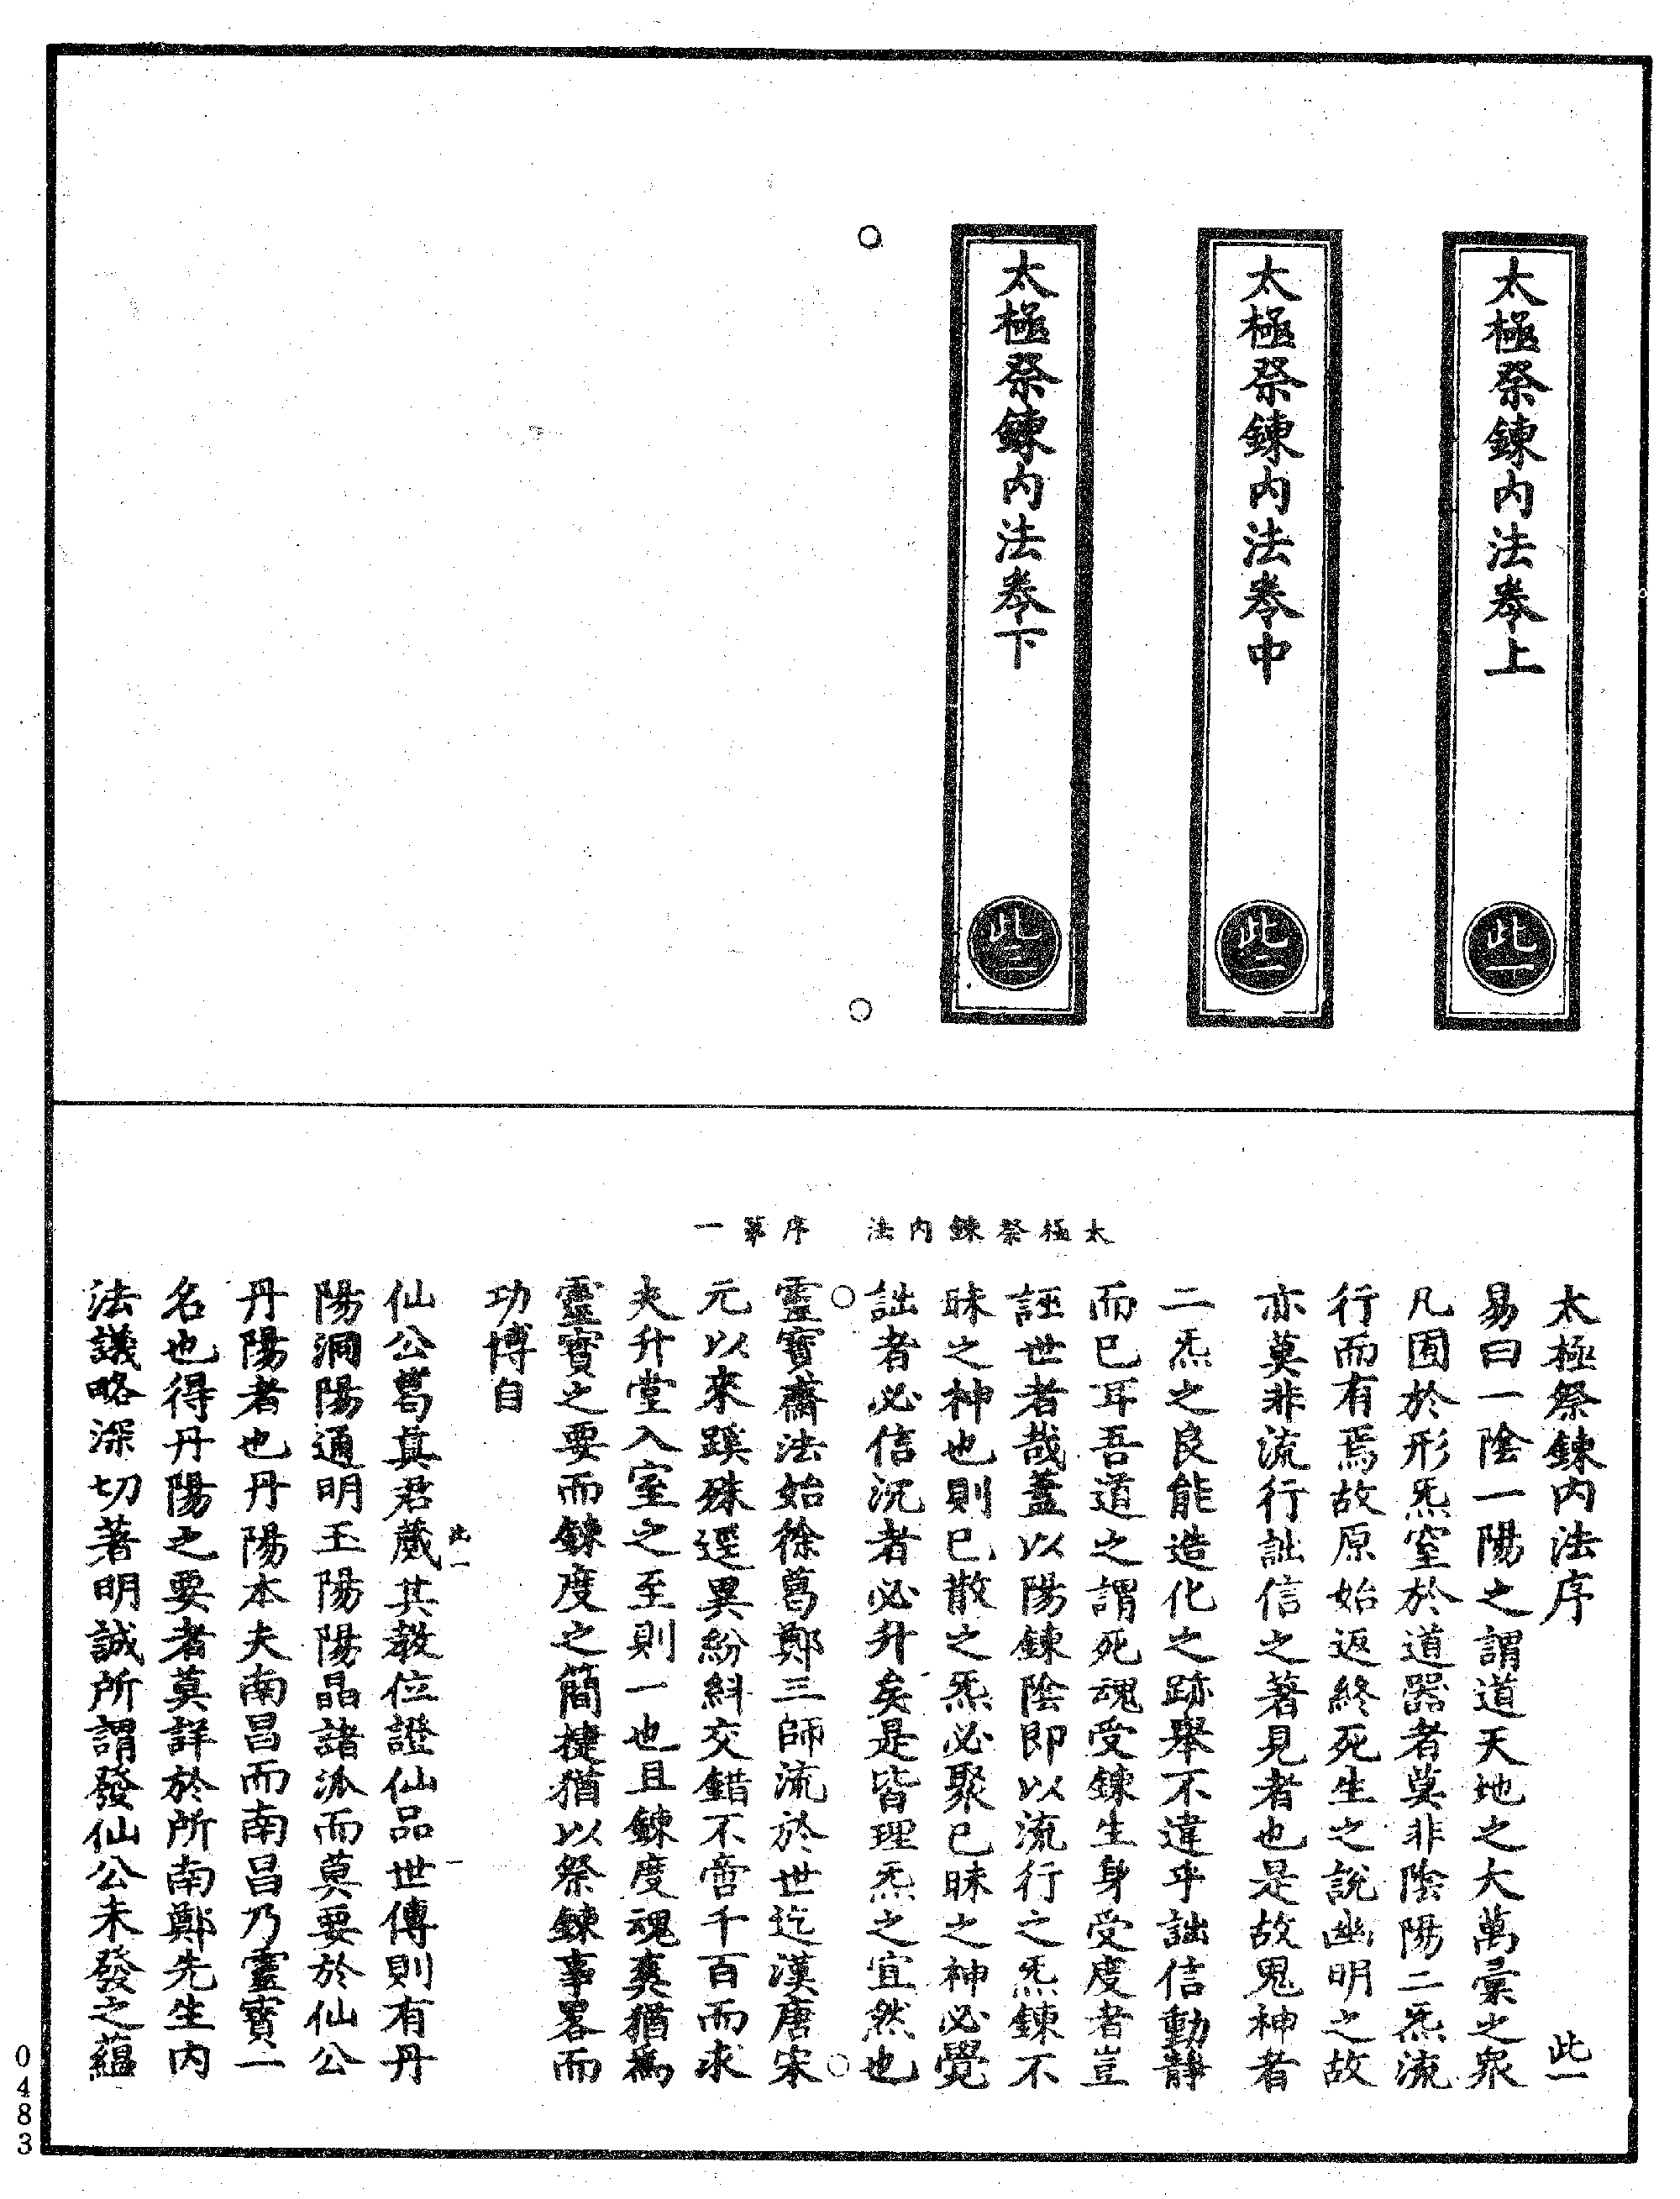 太極祭鍊内法卷上
此一
太極祭鍊内法卷中
此二
太極祭鍊内法卷下
此三
太極祭鍊内法 序第一
太極祭鍊内法序 此一
易曰一陰一陽之謂道天地之大萬彙之衆
凡囿於形炁窒於道器者莫非陰陽二炁流
行而有焉故原始返終死生之說幽明之故
亦莫非流行詘信之著見者也是故鬼神者
二炁之良能造化之跡舉不違乎詘信動靜
而已耳吾道之謂死魂受鍊生身受度者豈
誣世者哉蓋以陽鍊陰即以流行之炁鍊不
昧之神也則已散之炁必聚已昧之神必覺
詘者必信沉者必升矣是皆理炁之宜然也
靈寶齋法始徐葛鄭三師流於世迄漢唐宋
元以來蹊殊逕異紛糾交錯不啻千百而求
夫升堂入室之至則一也且鍊度魂爽猶為
靈寶之要而鍊度之簡捷猶以祭鍊事畧而
功博自
此一
一
仙公葛真君蕆其教位證仙品世傳則有丹
陽洞陽通明玉陽陽晶諸派而莫要於仙公
丹陽者也丹陽本夫南昌而南昌乃靈寶一
名也得丹陽之要者莫詳於所南鄭先生内
法議略深切著明誠所謂發仙公未發之蘊
0483